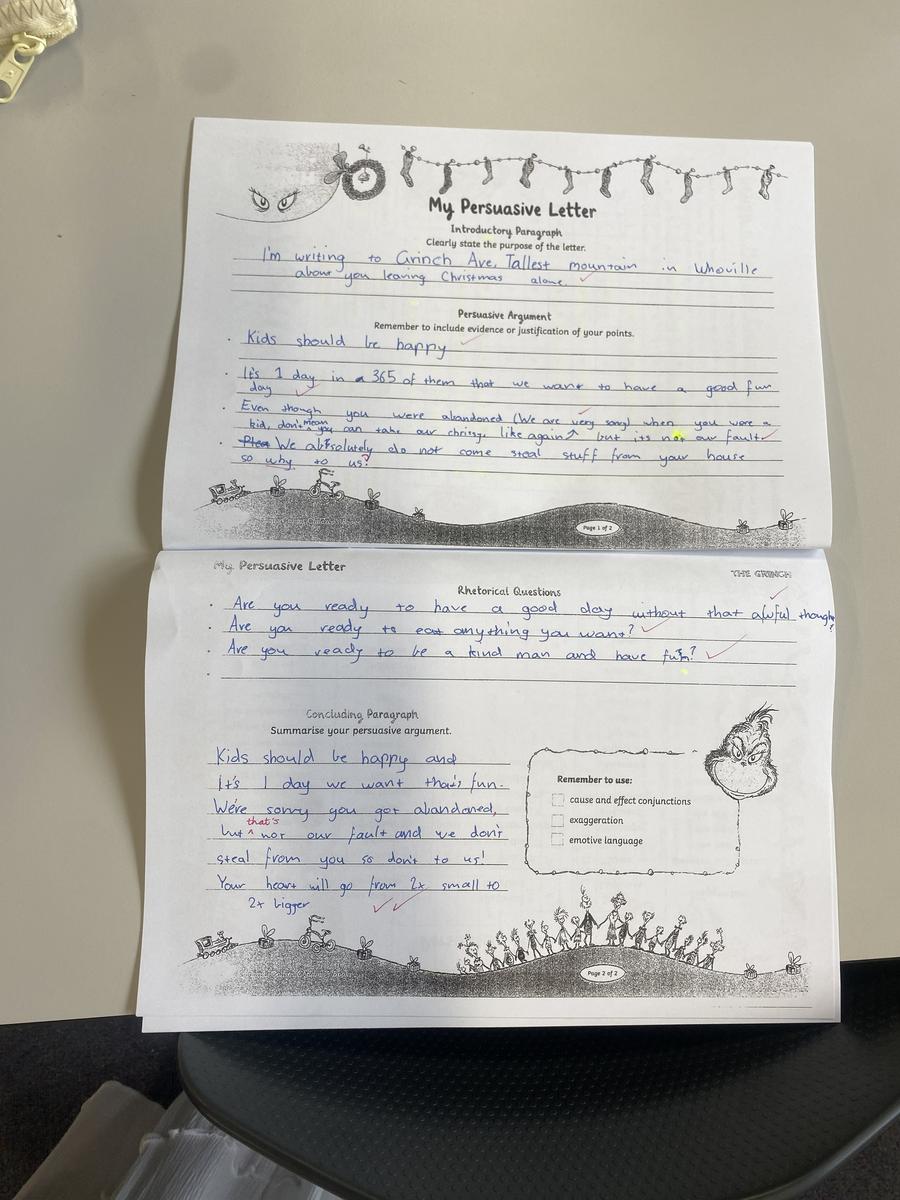 My Persuasive Letter
Introductory Paragraph
Clearly state the purpose of the letter.
I'm writing to Grinch Ave, Tallest mountain in Whoville
about you leaving Christmas alone
Persuasive Argument
Remember to include evidence or justification of your points.
• Kids should be happy
• It's 1 day in 365 of them that we want to have a good fun
day
• Even though you were abandoned (We are very sorry) when you were a
kid, don't mean you can take our chrissy, like again, but its not our fault
• We absolutely do not come steal stuff from your house
so why to us?
Page 1 of 2
My Persuasive Letter
THE GRINCH
Rhetorical Questions
• Are you ready to have a good day without that awful thought?
• Are you ready to eat anything you want?
• Are you ready to be a kind man and have fun?
•
Concluding Paragraph
Summarise your persuasive argument.
Kids should be happy and
It's 1 day we want thats fun.
We're sorry you got abandoned,
but that's not our fault and we dont
steal from you so don't to us!
Your heart will go from 2x small to
2x bigger
Remember to use:
cause and effect conjunctions
exaggeration
emotive language
Page 2 of 2